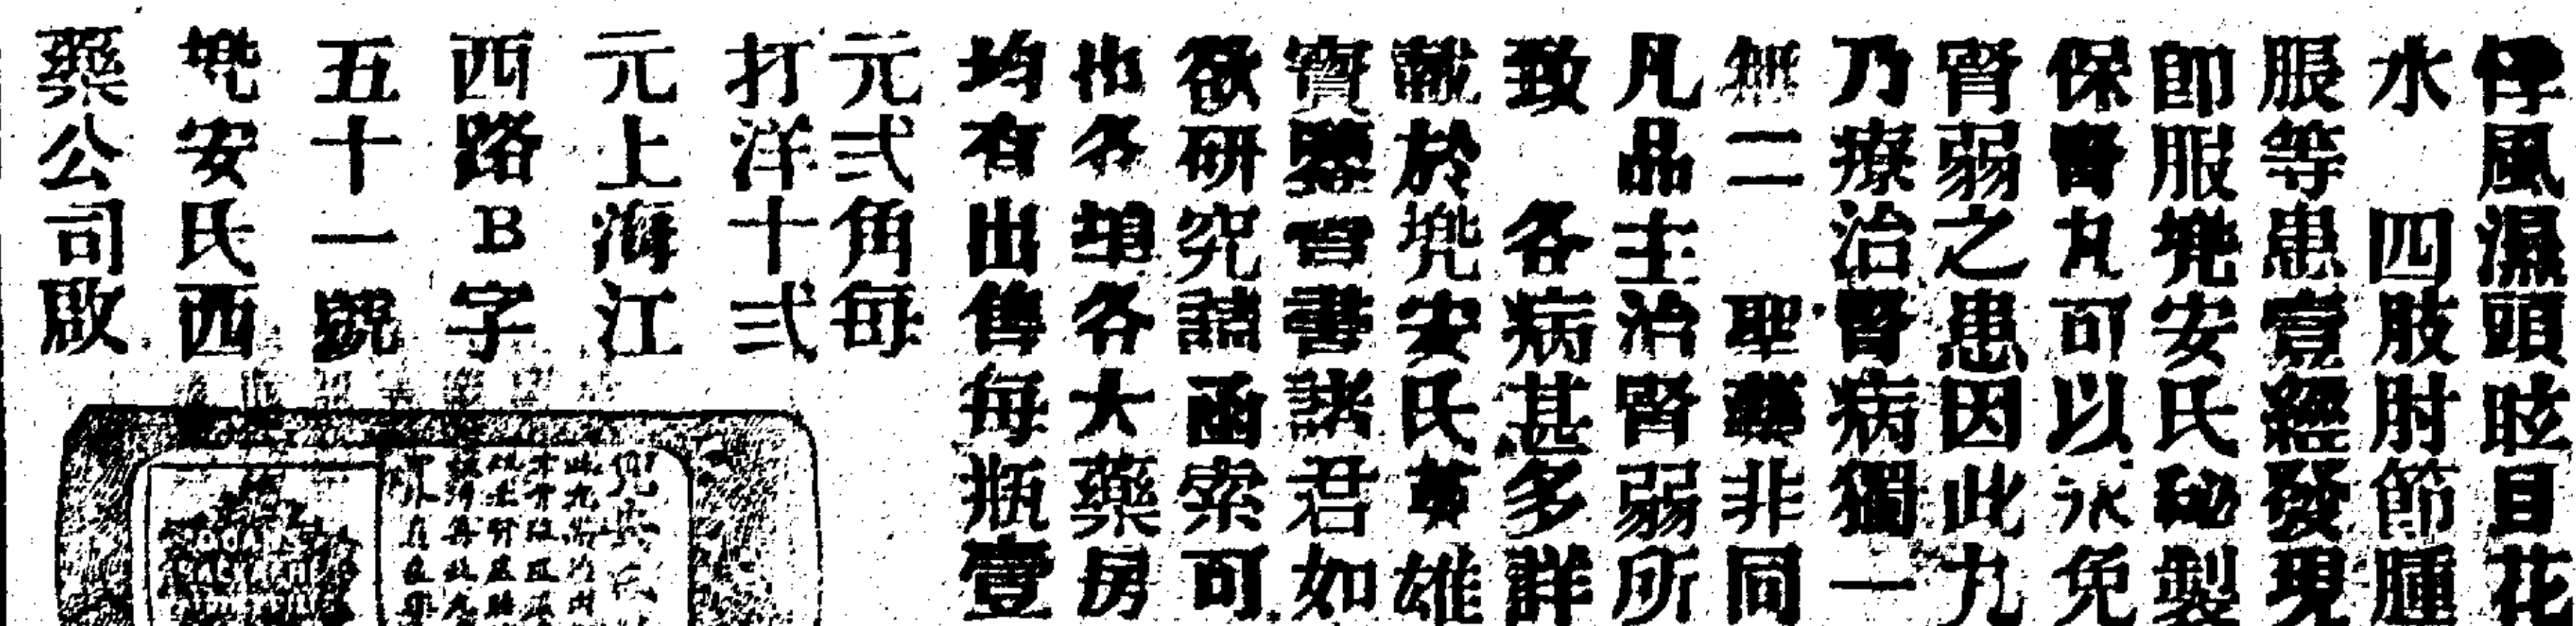 悸風濕頭眩目花
水　四肢肘節腫
脹等患壹經發現
即服兜安氏秘製
保腎丸可以永免
腎弱之患因此丸
乃療治腎病獨一
無二　聖藥非同
凡品主治腎弱所
致　各病甚多詳
載於兜安氏英雄
寶鑒書諸君如
欲研究請函索可
也各埠各大藥房
均有出售每瓶壹
元弍角每
打洋十弍
元上海江
西路B字
五十一號
兜安氏西
藥公司啟